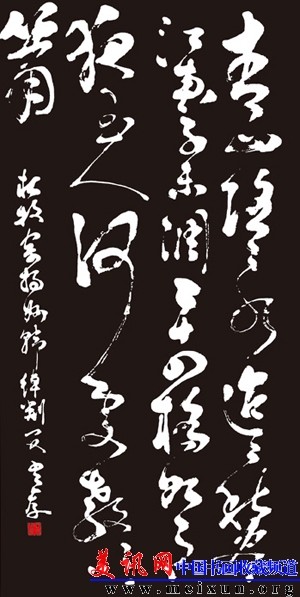 青山隱隱水迢迢秋盡
江南草未凋二十四橋明月
夜玉人何處教吹
簫
杜牧寄揚州韓綽判官
美讯网 中国书画收藏频道
www.meixun.org